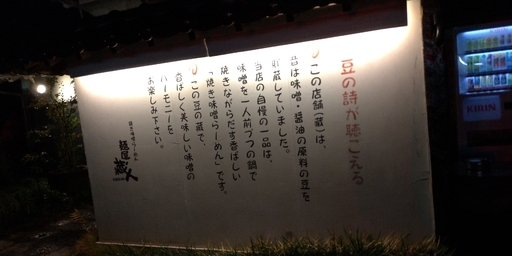 豆の詩が聴こえる
この店舗(蔵)は、
昔は味噌・醤油の原料の豆を
貯蔵していました。
当店の自慢の一品は、
味噌を一人前ずつの鍋で
焼きながらだす香ばしい
「焼き味噌らーめん」です。
この豆の蔵で、
香ばしく美味しい味噌の
ハーモニーを
お楽しみ下さい。
麺屋
蔵人
KIRIN